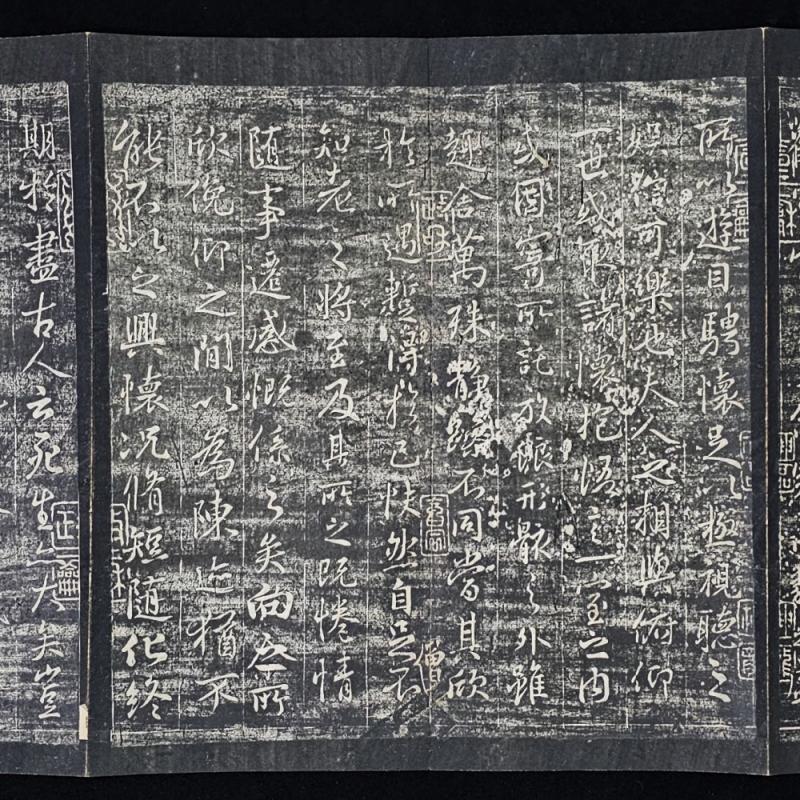 所以遊目騁懷足以極視聽之
娛信可樂也夫人之相與俯仰
一世或取諸懷抱悟言一室之內
或因寄所託放浪形骸之外雖
趣舍萬殊靜躁不同當其欣
僧
於所遇暫得於己怏然自足不
知老之將至及其所之既惓情
隨事遷感慨係之矣向之所
欣俛仰之間以為陳迹猶不
能不以之興懷況脩短隨化終
期於盡古人云死生亦大矣豈